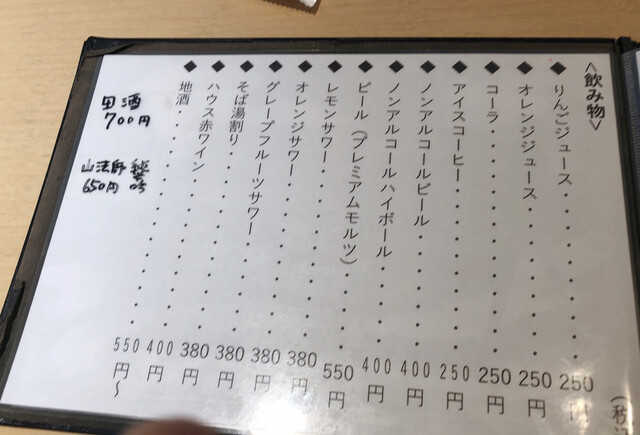 <飲み物>
◆りんごジュース・・・・・・・250円
◆オレンジジュース・・・・・・250円
◆コーラ・・・・・・・・・・・250円
◆アイスコーヒー・・・・・・・250円
◆ノンアルコールビール・・・・400円
◆ノンアルコールハイボール・・400円
◆ビール(プレミアムモルツ)・・・550円
◆レモンサワー・・・・・・・・380円
◆オレンジサワー・・・・・・・380円
◆グレープフルーツサワー・・・380円
◆そば湯割り・・・・・・・・・380円
◆ハウス赤ワイン・・・・・・・400円
◆地酒・・・・・・・・・・・・550円~
酒
700円
山法師
650円
(税